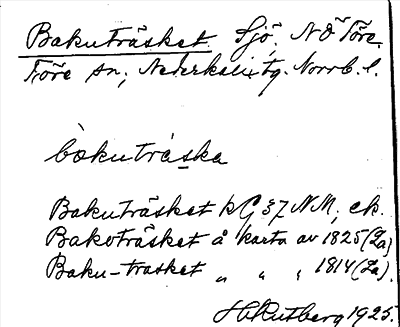 Bakuträsket. Sjö. NÖ Töre
Töre sn; Nederkalix tg. Norrb. l.
bakuträska
Bakuträsket kG 37 NM, ek.
Bakoträsket å karta av 1825 (La)
Baku-trasket „ „ , 1814 (La).
H Rutberg 1925.